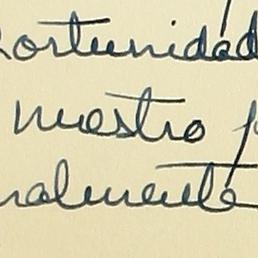 ortunidad
nuestro p
nalmente